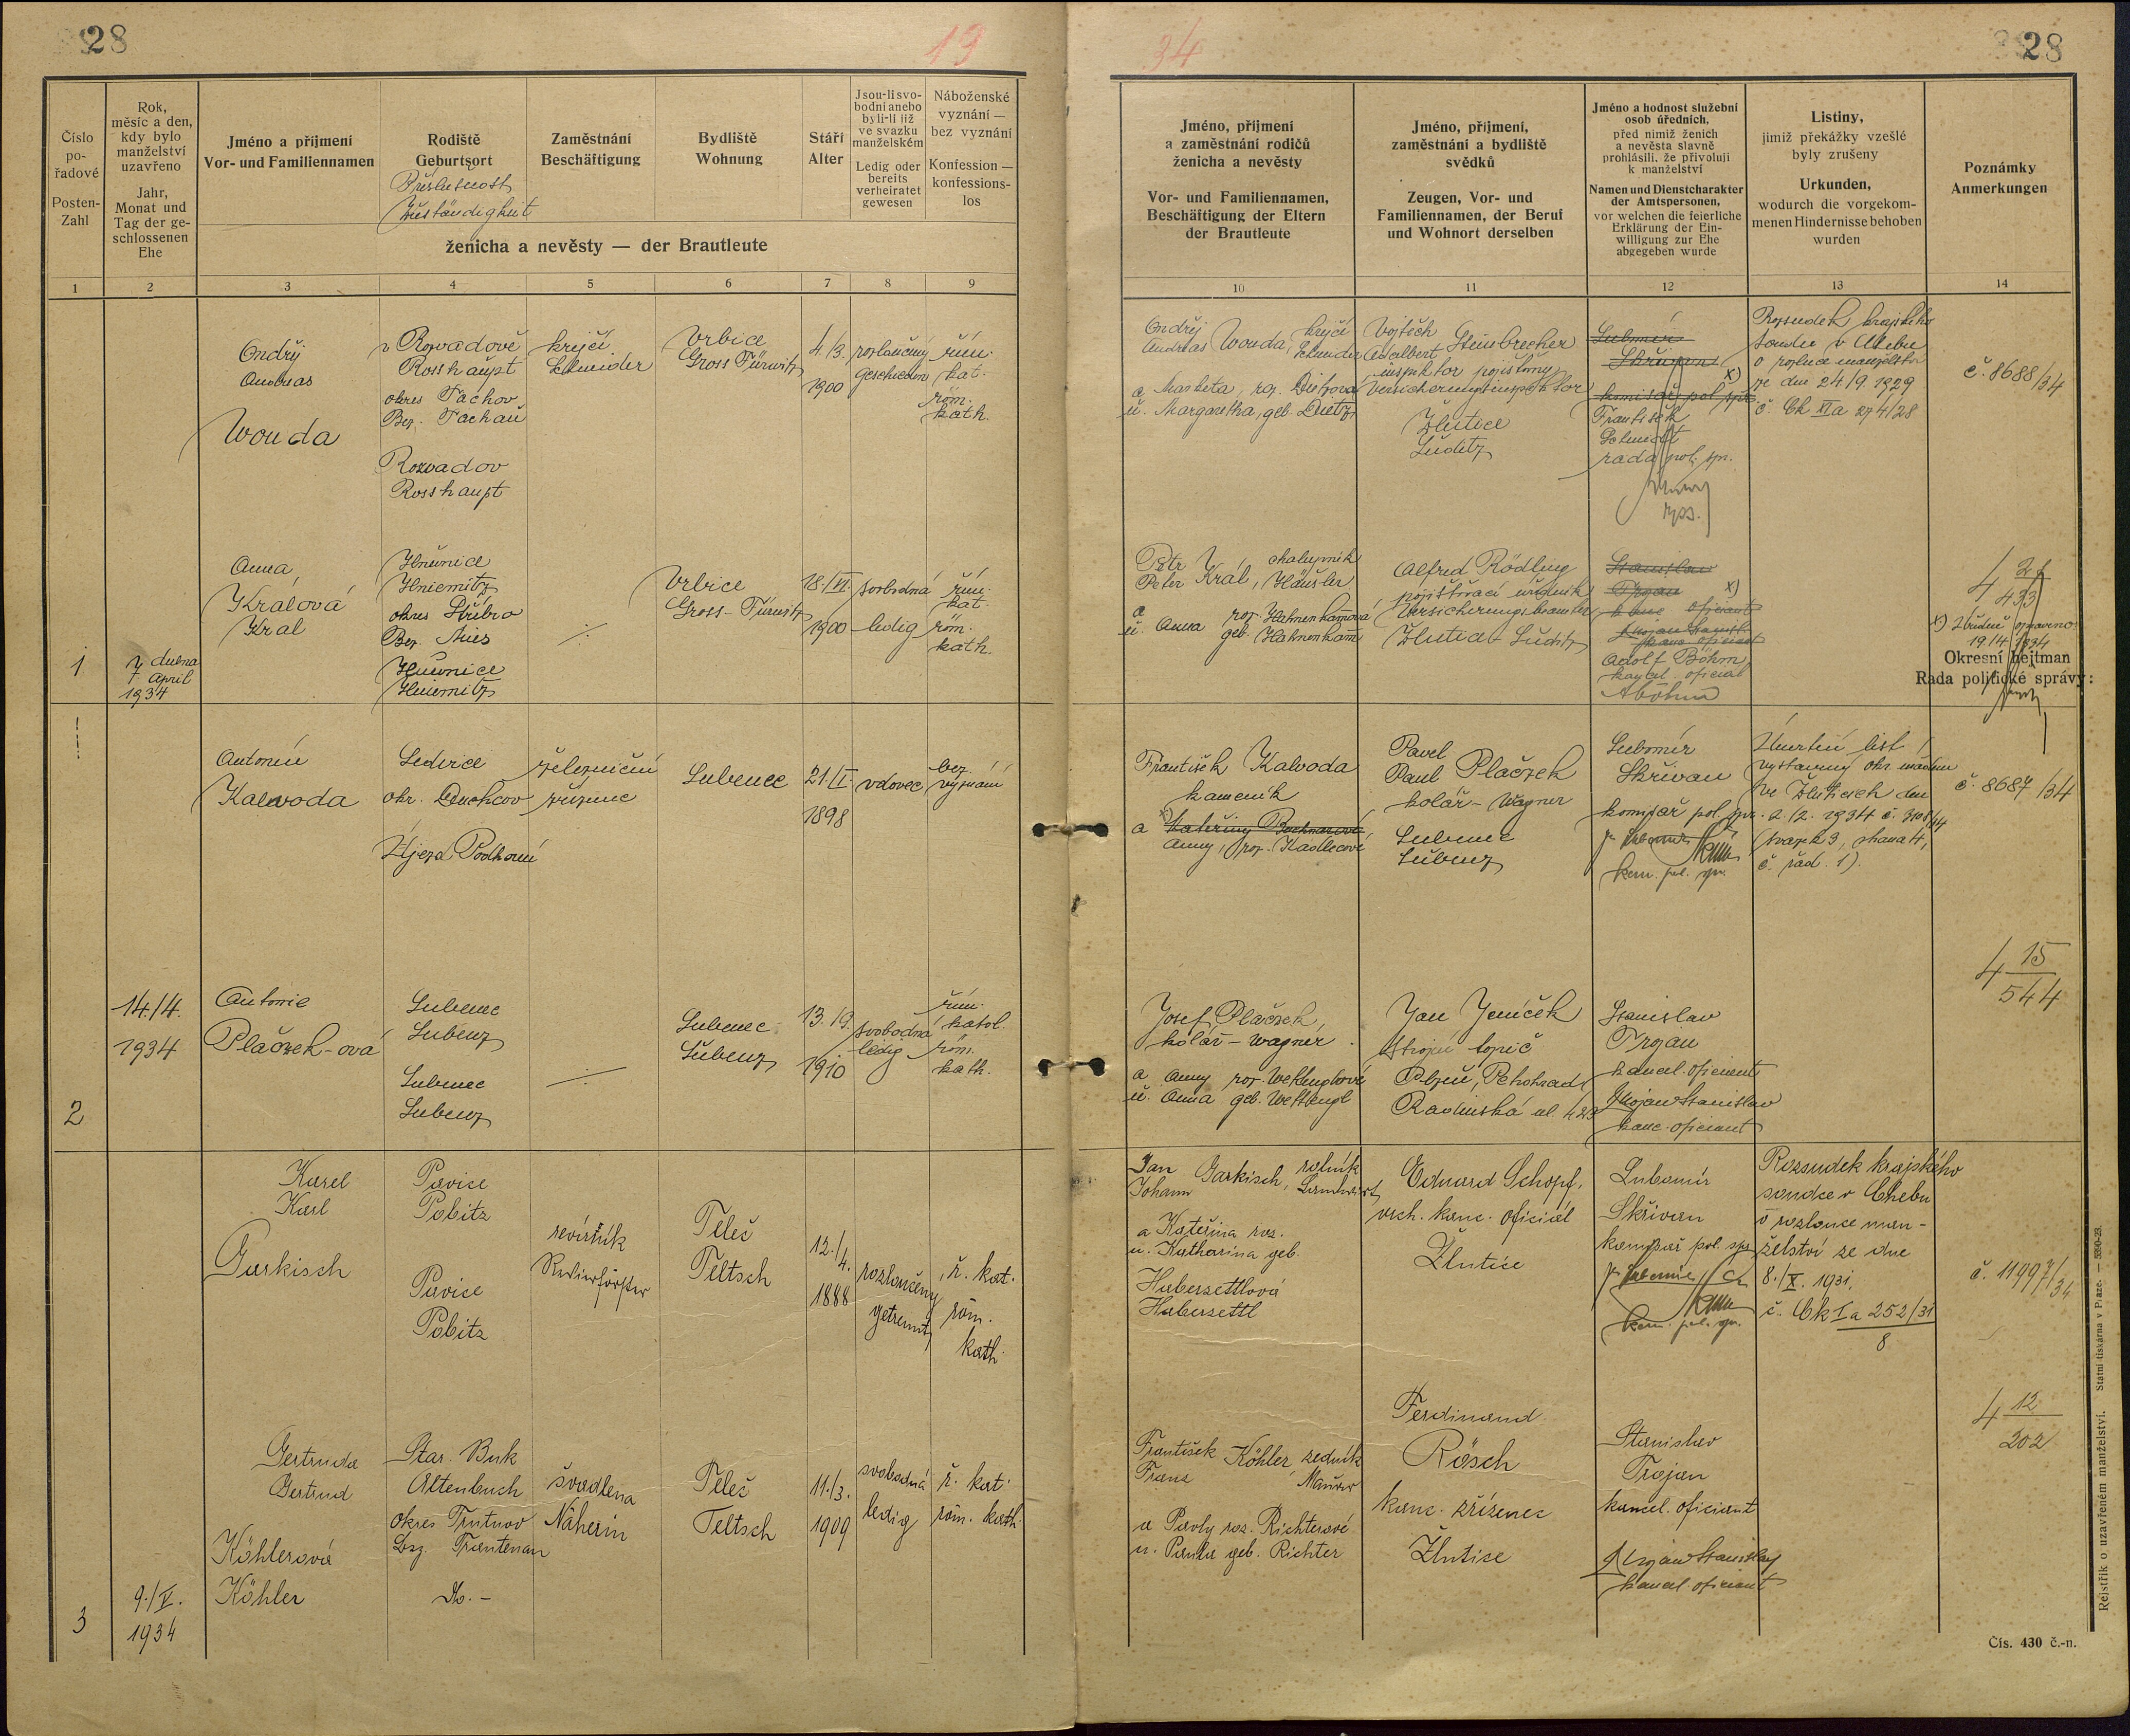 28
19
34
28
Číslo
po-
řadové
Posten-
Zahl
Rok,
měsíc a den,
kdy bylo
manželství
uzavřeno
Jahr,
Monat und
Tag der ge-
schlossenen
Ehe
Jméno a přijmení
Vor- und Familiennamen
Rodiště
Geburtsort
Příslušnost
Zuständigkeit
Zaměstnání
Beschäftigung
Bydliště
Wohnung
Stáří
Alter
Jsou-li svo-
bodni anebo
byli-li již
ve svazku
manželském
Ledig oder
bereits
verheiratet
gewesen
Náboženské
vyznání —
bez vyznání
Konfession —
konfessions-
los
ženicha a nevěsty — der Brautleute
1 2 3 4 5 6 7 8 9
Jméno, přijmení
a zaměstnání rodičů
ženicha a nevěsty
Vor- und Familiennamen,
Beschäftigung der Eltern
der Brautleute
Jméno, přijmení,
zaměstnání a bydliště
svědků
Zeugen, Vor- und
Familiennamen, der Beruf
und Wohnort derselben
Jméno a hodnost služební
osob úředních,
před nimiž ženich
a nevěsta slavně
prohlásili, že přivolují
k manželství
Namen und Dienstcharakter
der Amtspersonen,
vor welchen die feierliche
Erklärung der Ein-
willigung zur Ehe
abgegeben wurde
Listiny,
jimiž překážky vzešlé
byly zrušeny
Urkunden,
wodurch die vorgekom-
menen Hindernisse behoben
wurden
Poznámky
Anmerkungen
10 11 12 13 14
Ondřij
Andreas
Wouda
v Rozvadově
Rosshaupt
okres Tachov
Bez. Tachau
Rozvadov
Rosshaupt
krejčí
Schneider
Vrbice
Gross Fürwitz
4./3.
1900
rozloučený
geschieden
řím.
kat.
röm.
kath.
Ondřij Wouda, krejčí
Andreas Schneider
a Markéta, roz. Dietzová
u. Margaretha, geb. Dietz
Vojtěch Steinbrecher
Adalbert
inspektor pojišťovny
Versicherungsinspektor
Žlutice
Luditz
Lubomír
Skřivan x)
komisař pol. spr.
František
Schmidt
rada pol. spr.
Rozsudek krajského
soudu v Chebu
o rozluce manželství
ze dne 24/9. 1929
č. Ck XI a 274/28
č. 8688/34
1
7. dubna
7. April
1934
Anna
Králová
Kral
Hněvnice
Hniemitz
okres Stříbro
Bez. Mies
Hněvnice
Hniemitz
Vrbice
Gross-Fürwitz
18./VI.
1900
svobodná
ledig
řím.
kat.
röm.
kath.
Petr Král, chalupník
Peter Häusler
a roz. Hahnenkamová
u. Anna geb. Hahnenkam
Alfred Rödling
pojišťovací úředník
Versicherungsbeamter
Žlutice Luditz
Stanislav
Trojan x)
k anc oficiant
Trojan Stanisl.
kanc. oficiant
Adolf Böhm,
kancel. oficiál
ABöhm
4 433
x) Úředně opraveno
19/4. 1934
Okresní hejtman
Rada politické správy:
Antonín
Kalvoda
Ledvice
okr. Duchcov
Újezd Podhorní
železniční
zřízenec
Lubenec
21./I.
1898
vdovec
bez
vyznání
František Kalvoda
kameník
a Kateřiny Bochnarové
Anny, roz. Kadlecové
Pavel
Paul Placzek
kolář - Wagner
Lubenec
Lubenz
Lubomír
Skřivan
komisař pol. spr.
kom. pol. spr.
Úmrtní list
vystavený okr. úřadem
ve Žluticích dne
2./2. 1934
(svazek 3, strana 4,
č. řad. 1).
č. 8687/34
2
14./4.
1934
Antonie
Placzek-ová
Lubenec
Lubenz
Lubenec
Lubenz
Lubenec
Lubenz
13./9.
1910
svobodná
ledig
řím.
katol.
röm.
kath.
Josef Placzek,
kolář - Wagner
a Anny roz. Wettenglové
u. Anna geb. Wettengl
Jan Jeníček
strojní topič
Plzeň, Petrohrad
Radinská ul. 423
Stanislav
Trojan
kancel. oficiant
Trojan Stanislav
kanc. oficiant
4 15
544
Karel
Karl
Garkisch
Pavice
Pobitz
Pavice
Pobitz
revírník
Revierförster
Teleč
Teltsch
12./4.
1888
rozloučený
getrennt
ř. kat.
röm.
kath.
Jan Garkisch, rolník
Johann Landwirt
a Kateřina roz.
u. Katharina geb.
Habersettlová
Habersettl
Eduard Schopf,
vrch. kanc. oficiál
Žlutice
Lubomír
Skřivan
komisař pol. spr.
kom. pol. spr.
Rozsudek krajského
soudce v Chebu
o rozlouce man-
želství ze dne
8./X. 1931,
č. Ck I a 252/31
8
č. 11997/34
3
9./V.
1934
Gertruda
Gertrud
Köhlerová
Köhler
Star. Buk
Altenbuch
okres Trutnov
Bez. Trautenau
Dto. -
švadlena
Näherin
Teleč
Teltsch
11./3.
1909
svobodná
ledig
ř. kat.
röm. kath.
František Köhler, zedník
Franz Maurer
a Pavly roz. Richterové
u. Paula geb. Richter
Ferdinand
Rösch
kanc. zřízenec
Žlutice
Stanislav
Trojan
kancel. oficiant
Trojan Stanislav
kancel. oficiant
4 12
202
Rejstřík o uzavřeném manželství. Státní tiskárna v Praze. — 5350-23.
Čís. 430 č.-n.